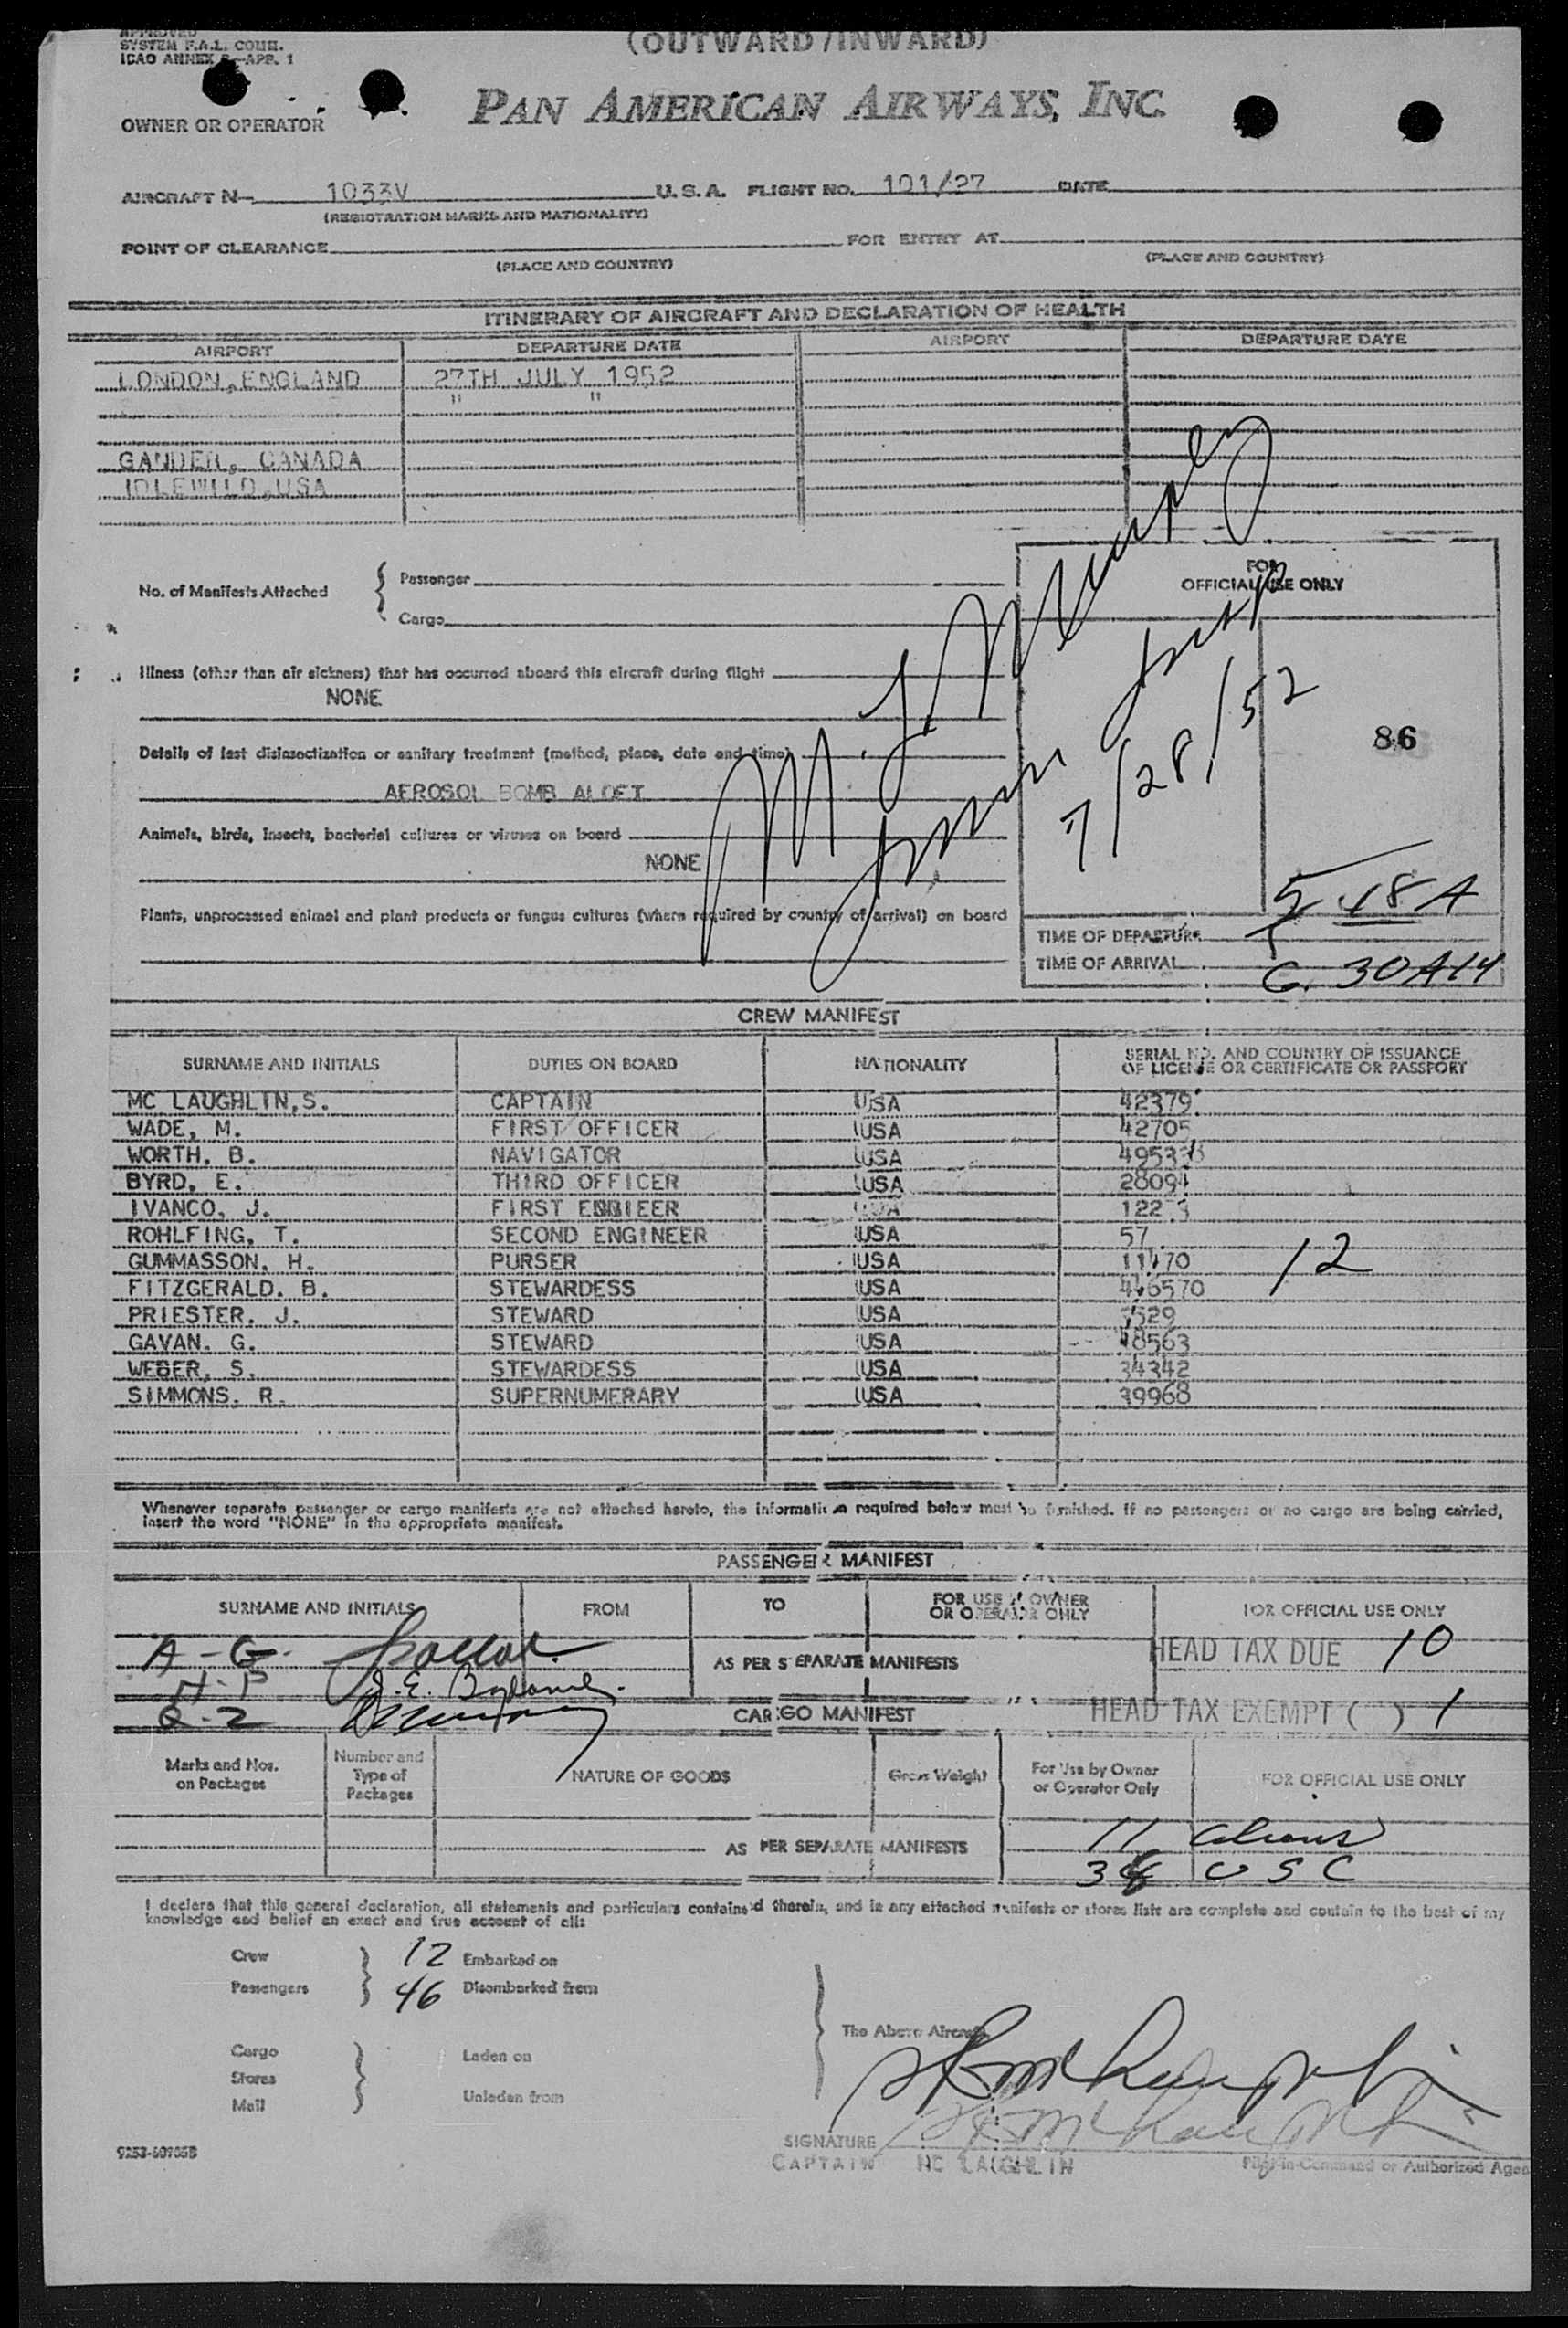 APPROVED
SYSTEM F.A.L. COMM.
ICAO ANNEX 9—APP. 1
(OUTWARD/INWARD)
OWNER OR OPERATOR PAN AMERICAN AIRWAYS, INC.
AIRCRAFT N- 1033V U.S.A. FLIGHT NO. 101/27 DATE
(REGISTRATION MARKS AND NATIONALITY)
POINT OF CLEARANCE FOR ENTRY AT
(PLACE AND COUNTRY) (PLACE AND COUNTRY)
ITINERARY OF AIRCRAFT AND DECLARATION OF HEALTH
AIRPORT DEPARTURE DATE AIRPORT DEPARTURE DATE
LONDON, ENGLAND 27TH JULY 1952
" "
GANDER, CANADA
IDLEWILD, USA
No. of Manifests Attached { Passenger
Cargo
FOR
OFFICIAL USE ONLY
Illness (other than air sickness) that has occurred aboard this aircraft during flight
NONE
7/28/52
86
Details of last disinsectization or sanitary treatment (method, place, date and time)
AEROSOL BOMB ALOFT
Animals, birds, insects, bacterial cultures or viruses on board
NONE
Plants, unprocessed animal and plant products or fungus cultures (where required by country of arrival) on board
5 18 A
TIME OF DEPARTURE
TIME OF ARRIVAL 6. 30 AM
CREW MANIFEST
SURNAME AND INITIALS DUTIES ON BOARD NATIONALITY SERIAL NO. AND COUNTRY OF ISSUANCE
OF LICENSE OR CERTIFICATE OR PASSPORT
MC LAUGHLIN, S. CAPTAIN USA 42379
WADE, M. FIRST OFFICER USA 42705
WORTH, B. NAVIGATOR USA
BYRD, E. THIRD OFFICER USA 28094
IVANCO, J. FIRST ENGIEER USA
ROHLFING, T. SECOND ENGINEER USA 57
GUMMASSON, H. PURSER USA 11170 12
FITZGERALD, B. STEWARDESS USA
PRIESTER, J. STEWARD USA
GAVAN, G. STEWARD USA 48563
WEBER, S. STEWARDESS USA 34342
SIMMONS, R. SUPERNUMERARY USA 39968
Whenever separate passenger or cargo manifests are not attached hereto, the information required below must be furnished. If no passengers or no cargo are being carried,
insert the word "NONE" in the appropriate manifest.
PASSENGER MANIFEST
SURNAME AND INITIALS FROM TO FOR USE BY OWNER
OR OPERATOR ONLY FOR OFFICIAL USE ONLY
A-G.
AS PER SEPARATE MANIFESTS HEAD TAX DUE 10
H-P
Q-Z
CARGO MANIFEST HEAD TAX EXEMPT ( ) 1
Marks and Nos.
on Packages Number and
Type of
Packages NATURE OF GOODS Gross Weight For Use by Owner
or Operator Only FOR OFFICIAL USE ONLY
AS PER SEPARATE MANIFESTS 11 aliens
USC
I declare that this general declaration, all statements and particulars contained therein, and in any attached manifests or stores lists are complete and contain to the best of my
knowledge and belief an exact and true account of all:
Crew } 12 Embarked on
Passengers } 46 Disembarked from
The Above Aircraft
Cargo Laden on
Stores
Mail Unladen from
SIGNATURE
CAPTAIN MC LAUGHLIN Pilot-in-Command or Authorized Agen